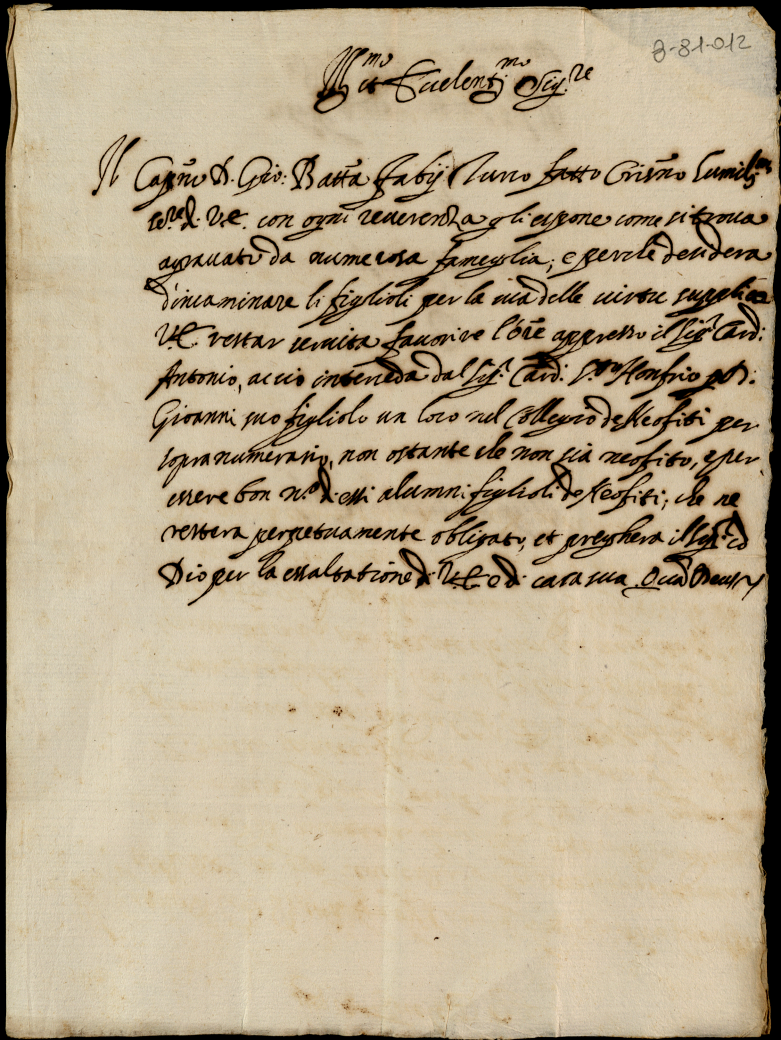 8-81-012
Ill.mo et Eccelent.mo Sig.re
Il Cap.no D. Gio: Batta Fabij Turco fatto Crisno humiliss.mo
ser.re di V.E. con ogni reverenza gli espone come si trova
agravato da numerosa fameglia, e perche desidera
d'incaminare li figlioli per la via delle virtu supplica
V.E. restar servita favorire l'Ore appresso il Sig.r Card:
Antonio, accio interceda dal Sig.r Card. S.to Honfrio p D:
Gioanni suo figliolo un loco nel Collegio de Neofiti per
sopranumerario, non ostante che non sia neofito, e per
essere bon n.o di essi alumni figlioli de Neofiti, che ne
restera perpetuamente obligato, et pregherà il Sig.r Id
Dio per la essaltatione di V.E. e di casa sua Quam Deus